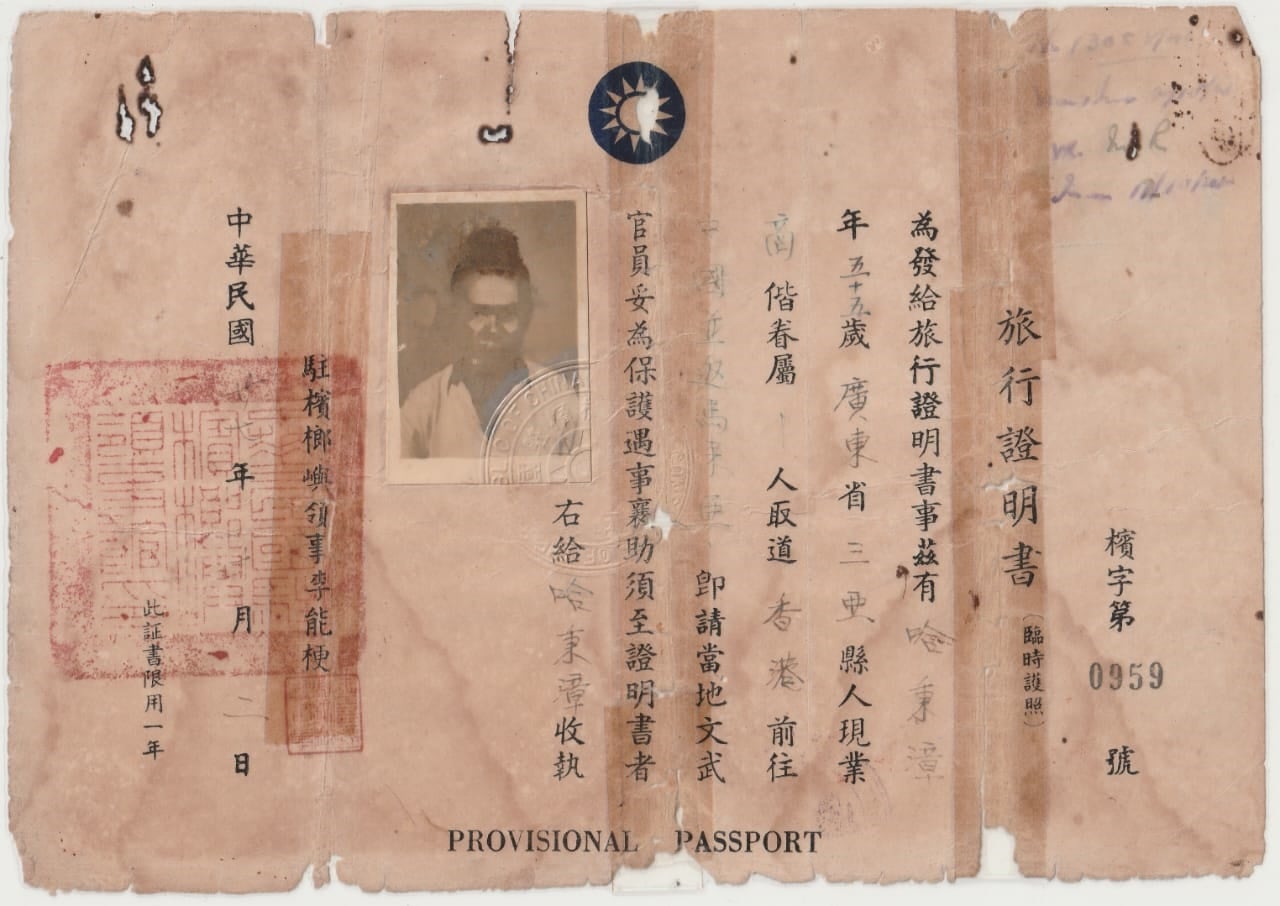 檳字第 0959 號
旅行證明書(臨時護照)
為發給旅行證明書事茲有 哈秉漳
年五十五歲 廣東省三亜縣人現業
商 偕眷屬 人取道 香港 前往
中國並返馬來亜 卽請當地文武
官員妥為保護遇事襄助須至證明書者
右給 哈秉漳 收執
駐檳榔嶼領事李能梗
中華民國 年 月 二 日
此証書限用一年
PROVISIONAL PASSPORT
OF CHINA